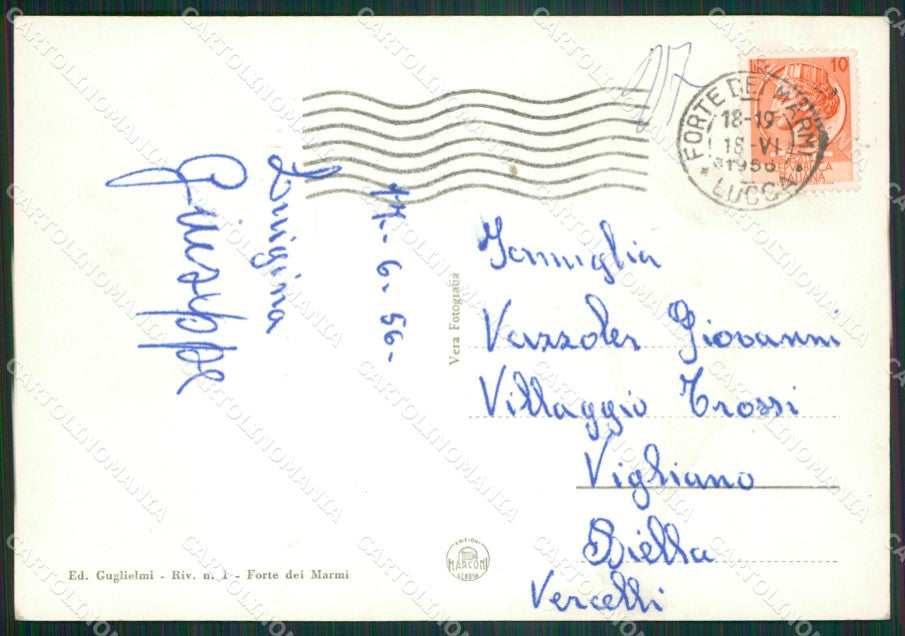 17
10
REPUBBLICA
ITALIANA
FORTE DEI MARMI
18-19
18-VI
1956
* LUCCA *
17-6-56-
Luigina
Giuseppe
Vera Fotografia
Famiglia
Vezzoler Giovanni
Villaggio Trossi
Vigliano
Biella
Vercelli
EDIZIONI
MARCONI
GENOVA
Ed. Guglielmi - Riv. n. 1 - Forte dei Marmi
CARTOLINOMANIA